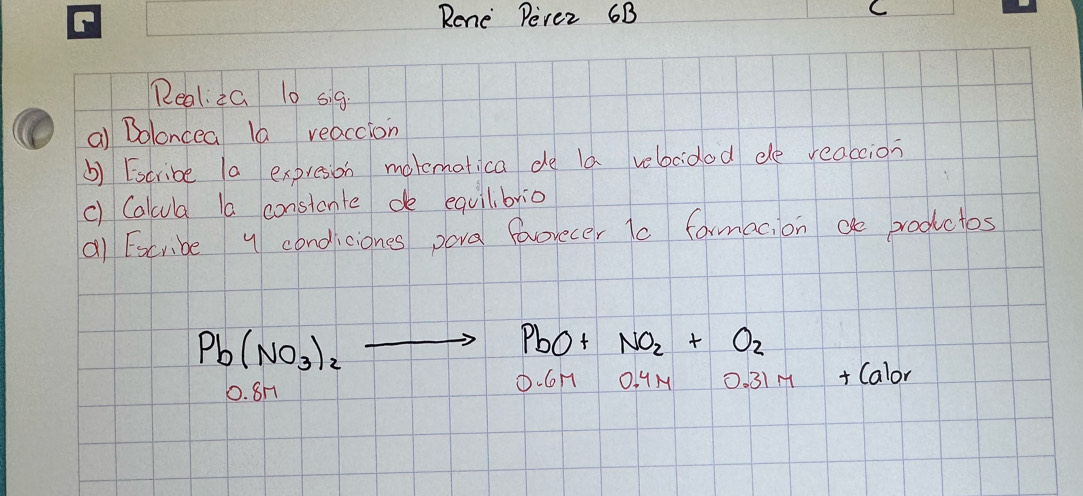 René Pérez 6B
C
Realiza lo sig.
a) Balancea la reacción
b) Escribe la expresión matematica de la velocidad de reacción
c) Calcula la constante de equilibrio
d) Escribe 4 condiciones para favorecer la formación de productos
Pb(NO₃)₂ ⟶ PbO + NO₂ + O₂
0.8M 0.6M 0.4M 0.31M + Calor